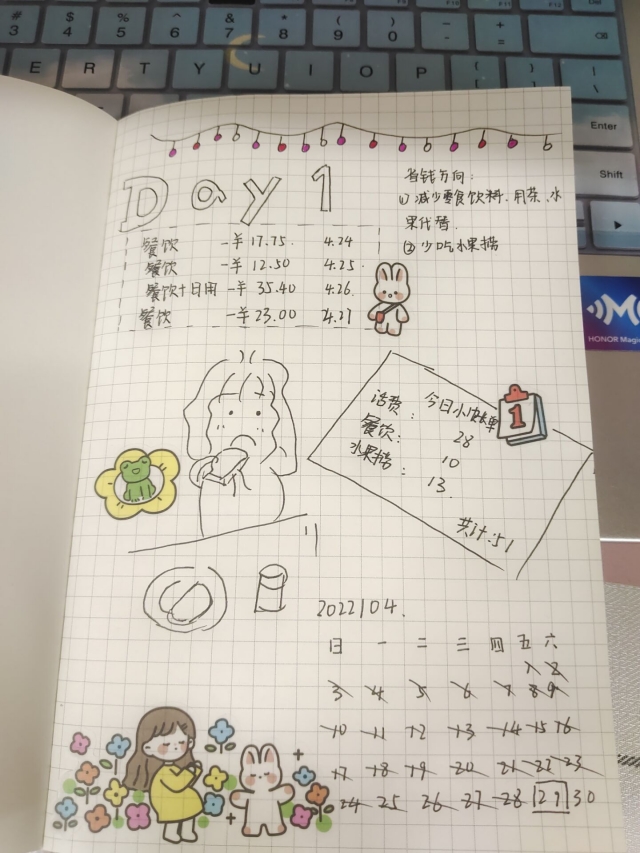 # $ % ^ & * ( ) _ +
3 4 5 6 7 8 9 0 - =
E R T Y U I O P { [ } ] | \
Enter
Shift
HONOR Magic
Day 1
餐饮 -¥17.75. 4.24
餐饮 -¥12.50 4.25.
餐饮+日用 -¥35.40 4.26.
餐饮 -¥23.00 4.27
省钱方向:
(1) 减少零食饮料.用茶、水
果代替.
(2) 少吃水果捞
1
今日小账单
话费: 28
餐饮: 10
水果捞: 13.
共计:51
2022/04.
日 一 二 三 四 五 六
1 2
3 4 5 6 7 8 9
10 11 12 13 14 15 16
17 18 19 20 21 22 23
24 25 26 27 28 29 30